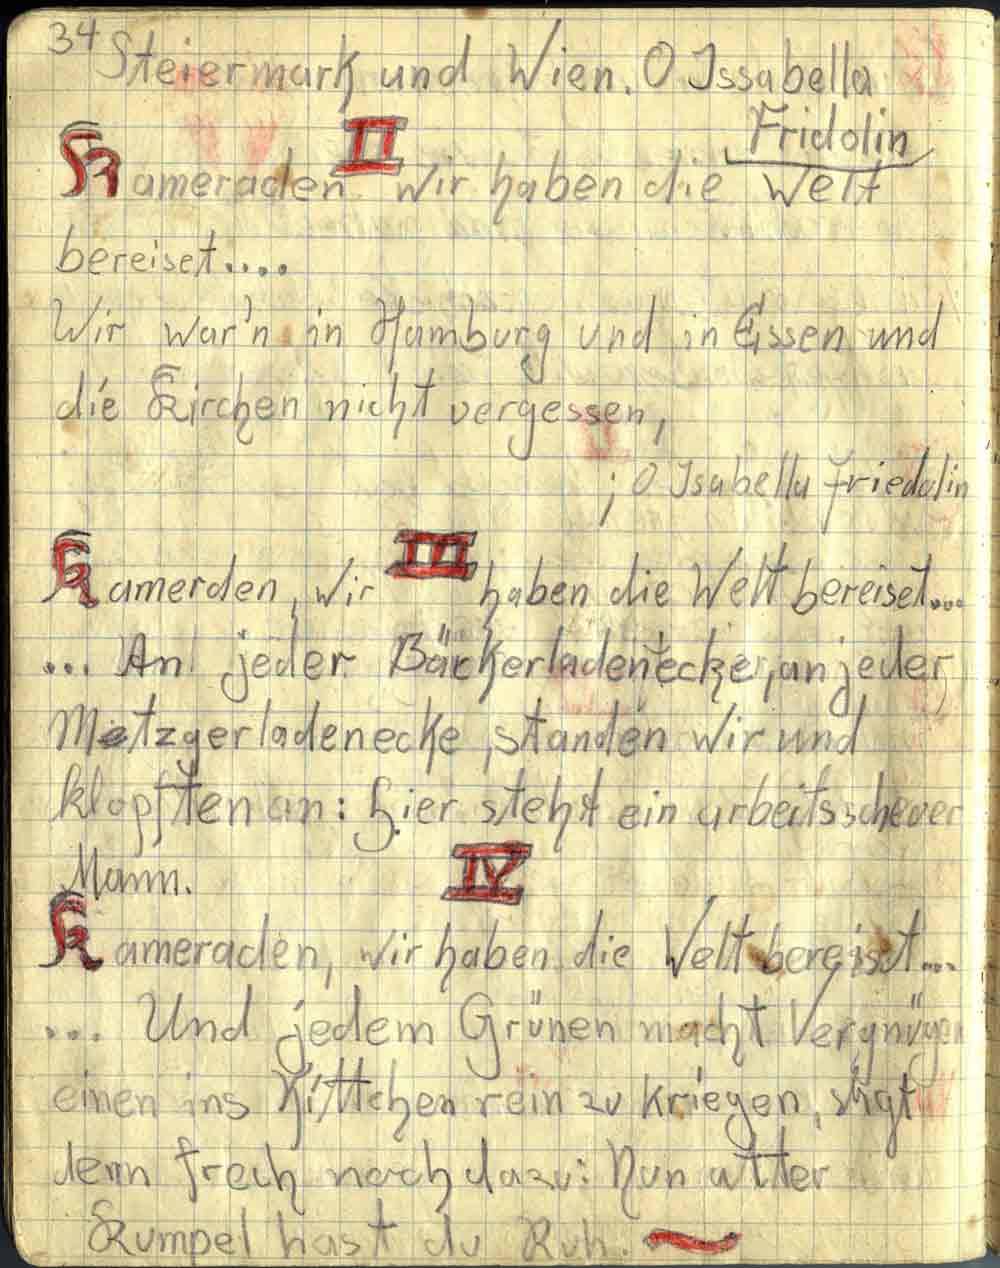 34
Steiermark und Wien. O Issabella
Fridolin
II
Kameraden wir haben die Welt
bereiset....
Wir war'n in Hamburg und in Essen und
die Kirchen nicht vergessen,
; O Isabella Friedolin
III
Kamerden, wir haben die Welt bereiset...
... An jeder Bäckerladenecke, an jeder
Metzgerladenecke, standen wir und
klopften an: hier steht ein arbeitsscheuer
Mann.
IV
Kameraden, wir haben die Welt bereiset...
... Und jedem Grünen macht Vergnügen
einen ins Kittchen rein zu kriegen, sagt
denn frech noch dazu: Nun alter
Kumpel hast du Ruh.